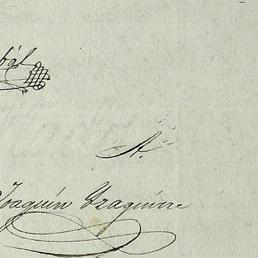 bál
A.
Joaquín Yzaguirre